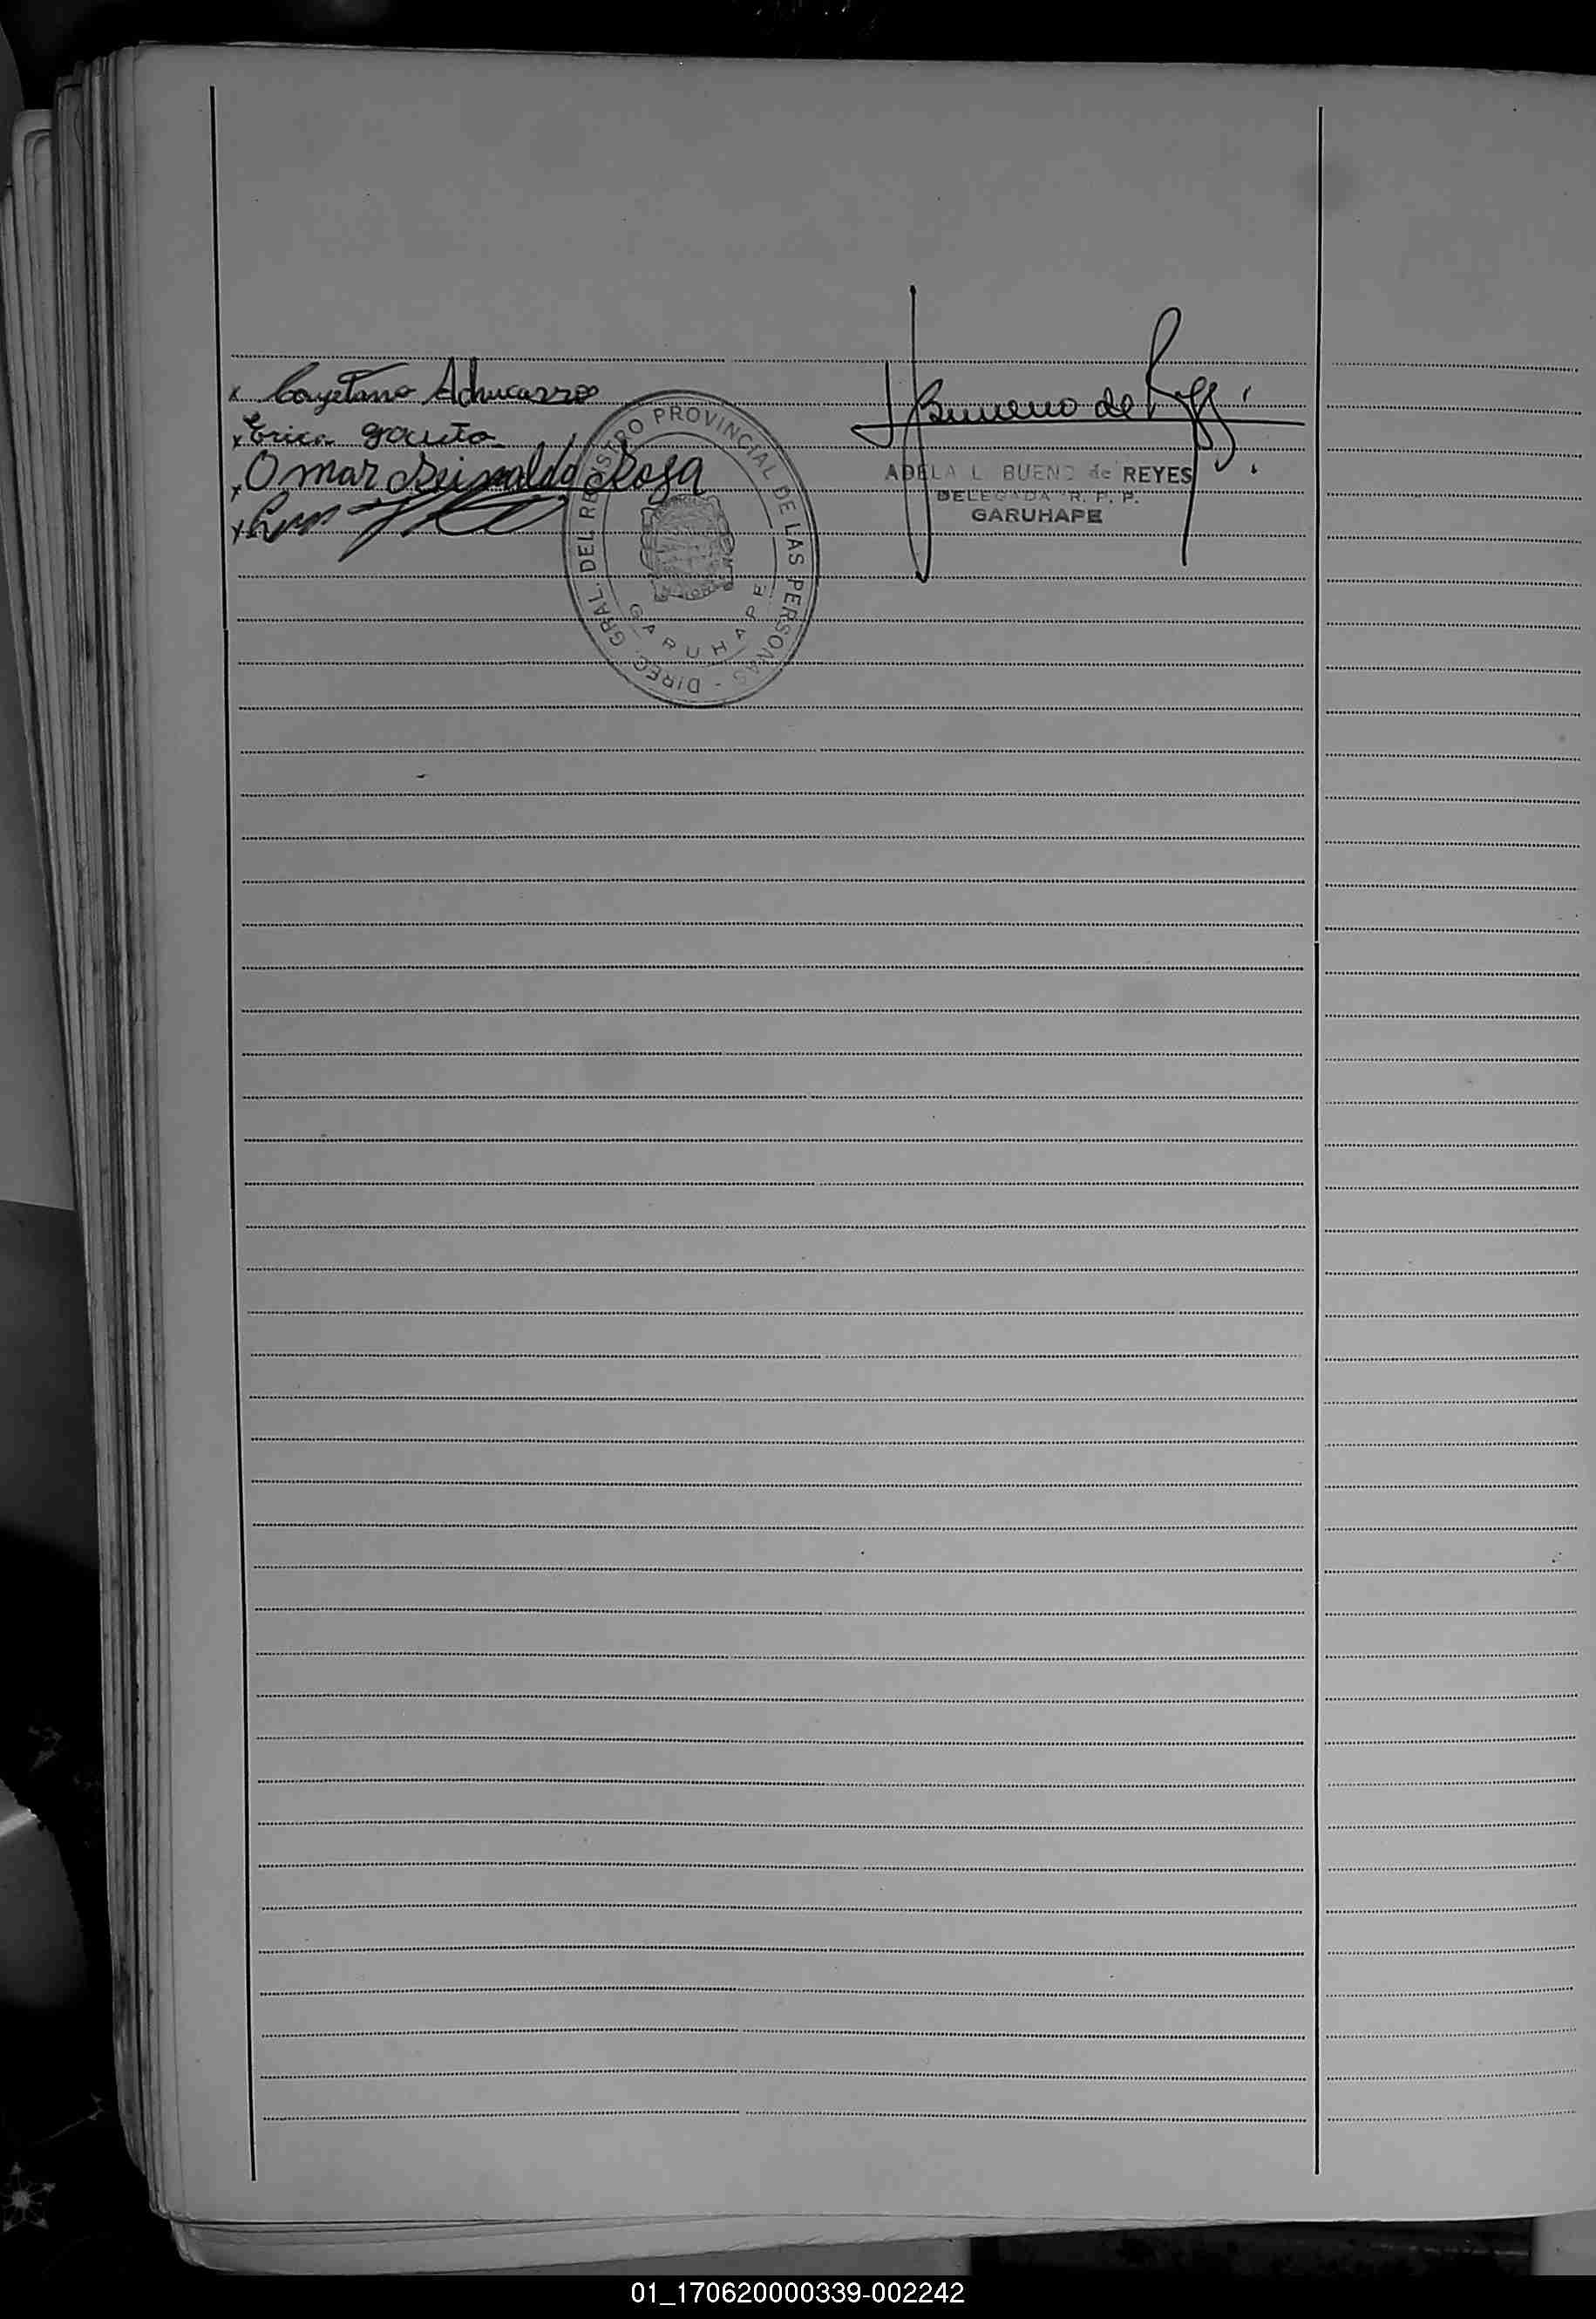 x Cayetano Achucarro
x Erica gauto
x Omar Reinaldo Rosa
x
Bueno de Reyes
ADELA L. BUENO de REYES
DELEGADA R. P. P.
GARUHAPE
DIREC. GRAL. DEL REGISTRO PROVINCIAL DE LAS PERSONAS -
GARUHAPE
01_170620000339-002242